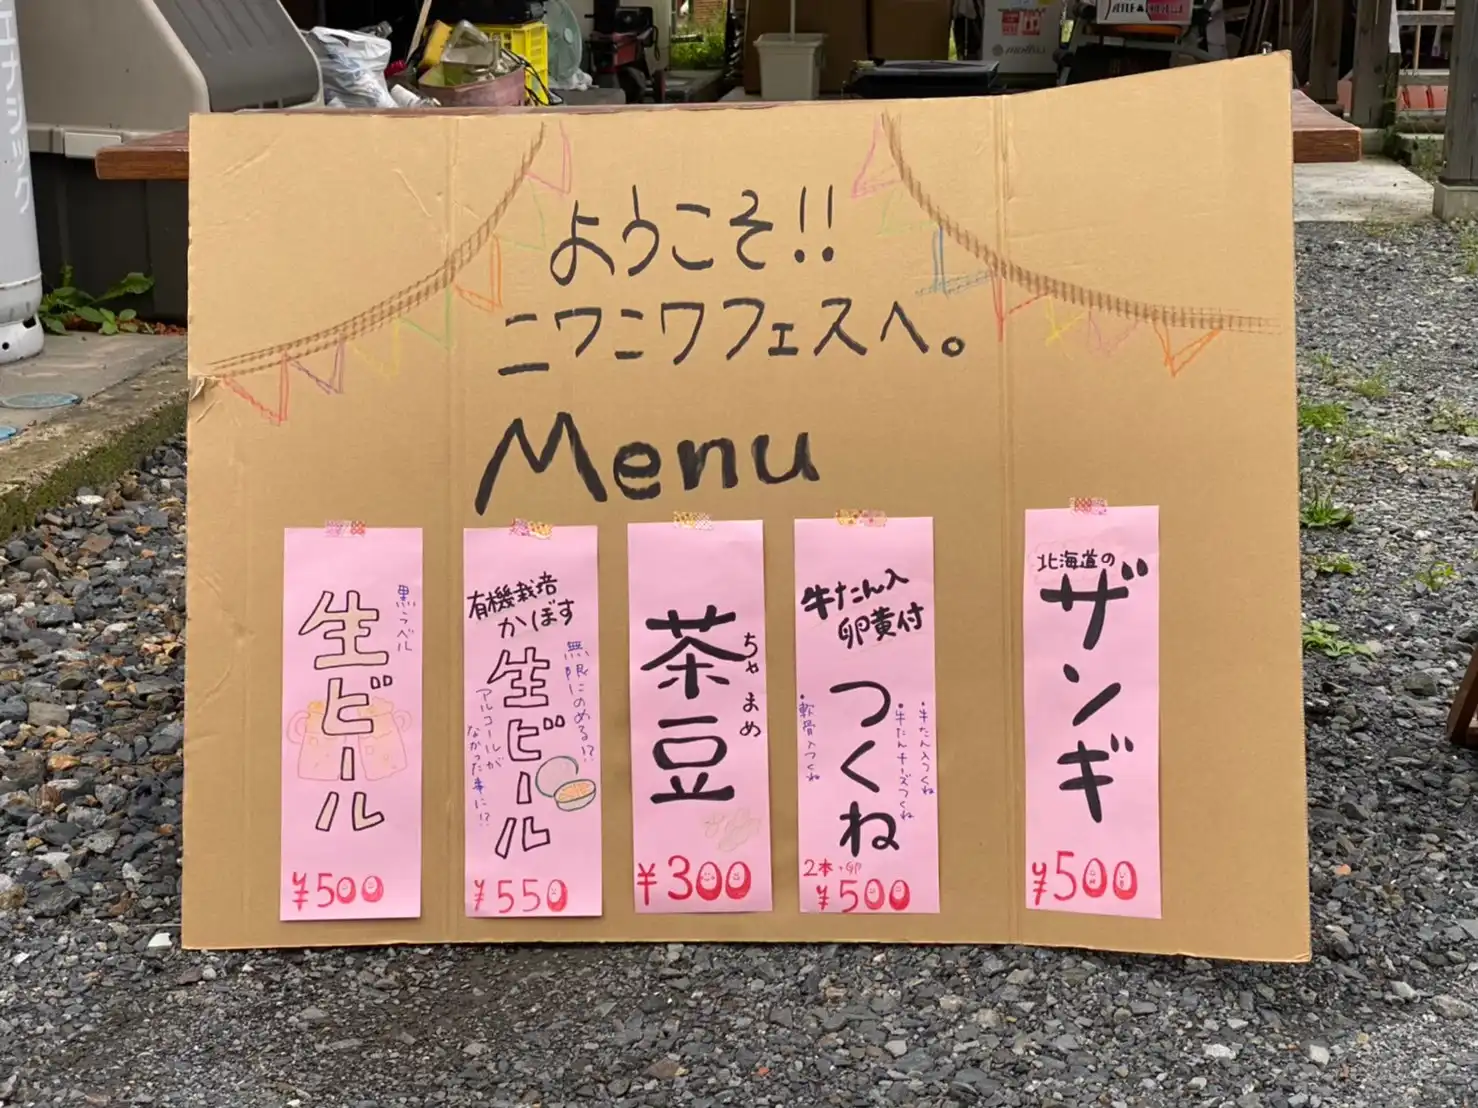 ようこそ!!
ニワニワフェスへ。
Menu
黒ラベル
生ビール
¥500
有機栽培
かぼす
生ビール
無限にのめる!?
アルコールが
なかった事に!?
¥550
茶豆
ちゃまめ
¥300
牛たん入
卵黄付
つくね
・牛たん入つくね
・牛たんチーズつくね
・軟骨入つくね
2本+卵
¥500
北海道の
ザンギ
¥500